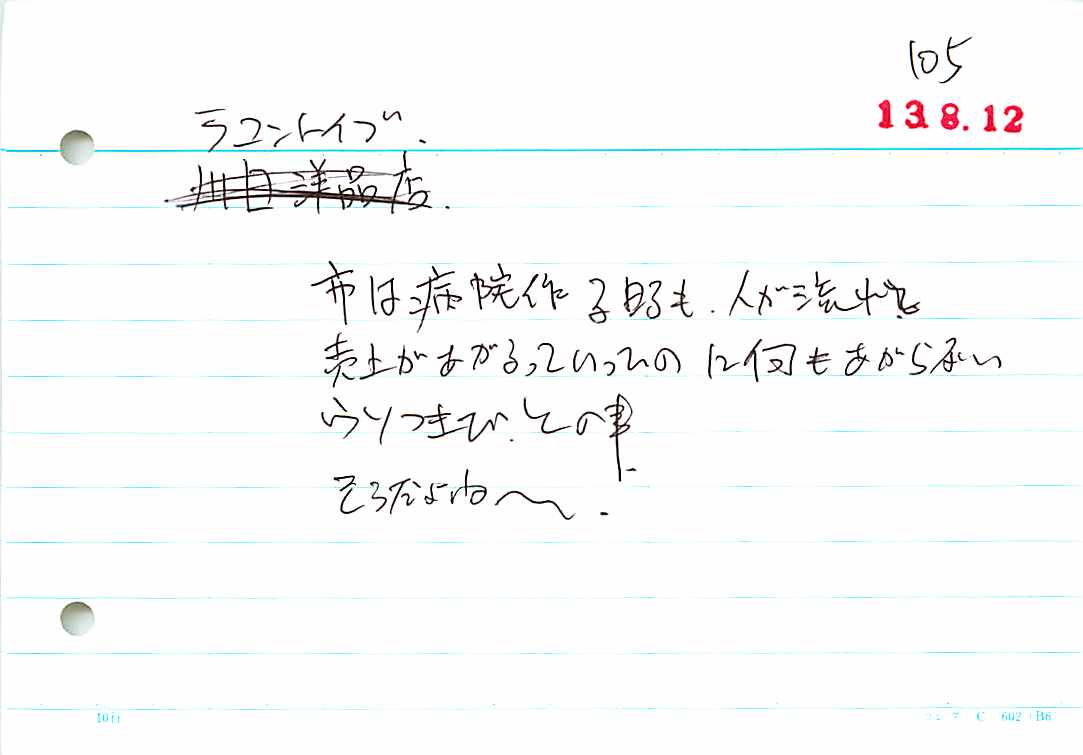 105
13.8.12
ラコントイブ.
川目洋品店.
市は病院作る時も、人が流れる
売上があがるっていってたのに何もあがらない
うそつきだ、との事
そうだよね〜.
10行
C 602 B6